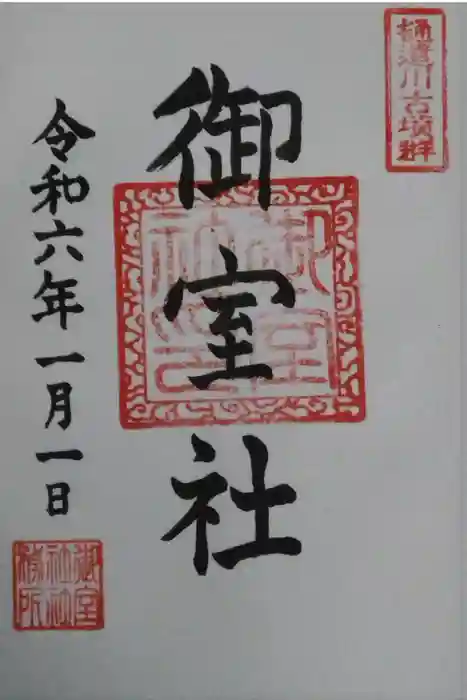 樋遣川古墳群
御室社
令和六年一月一日
御室
社社
務所